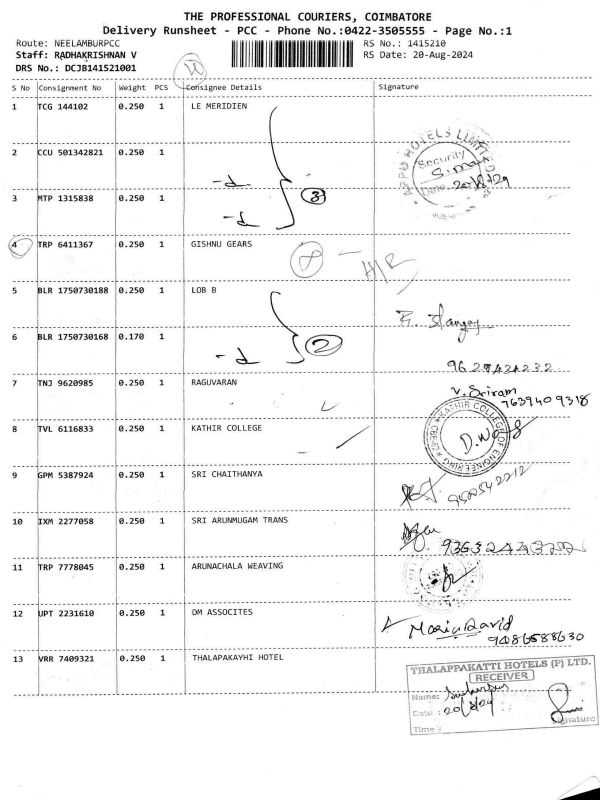 THE PROFESSIONAL COURIERS, COIMBATORE
Delivery Runsheet - PCC - Phone No.:0422-3505555 - Page No.:1
Route: NEELAMBURPCC RS No.: 1415210
Staff: RADHAKRISHNAN V RS Date: 20-Aug-2024
DRS No.: DCJB141521001
S No Consignment No Weight PCS Consignee Details Signature
1 TCG 144102 0.250 1 LE MERIDIEN
APPU HOTELS LIMITED
2 CCU 501342821 0.250 1
Security
Date 20/8/24
3 MTP 1315838 0.250 1
-d
-d
3
4 TRP 6411367 0.250 1 GISHNU GEARS
8
5 BLR 1750730188 0.250 1 LOB B
6 BLR 1750730168 0.170 1
-d
2
7 TNJ 9620985 0.250 1 RAGUVARAN
V. Sriram
7639409318
8 TVL 6116833 0.250 1 KATHIR COLLEGE
KATHIR COLLEGE OF ENGINEERING
9 GPM 5387924 0.250 1 SRI CHAITHANYA
10 IXM 2277058 0.250 1 SRI ARUNMUGAM TRANS
11 TRP 7778045 0.250 1 ARUNACHALA WEAVING
12 UPT 2231610 0.250 1 DM ASSOCITES
Maria David
9486588630
13 VRR 7409321 0.250 1 THALAPAKAYHI HOTEL
THALAPPAKATTI HOTELS (P) LTD.
RECEIVER
Name:
Date: 20/8/24
Time:
Signature